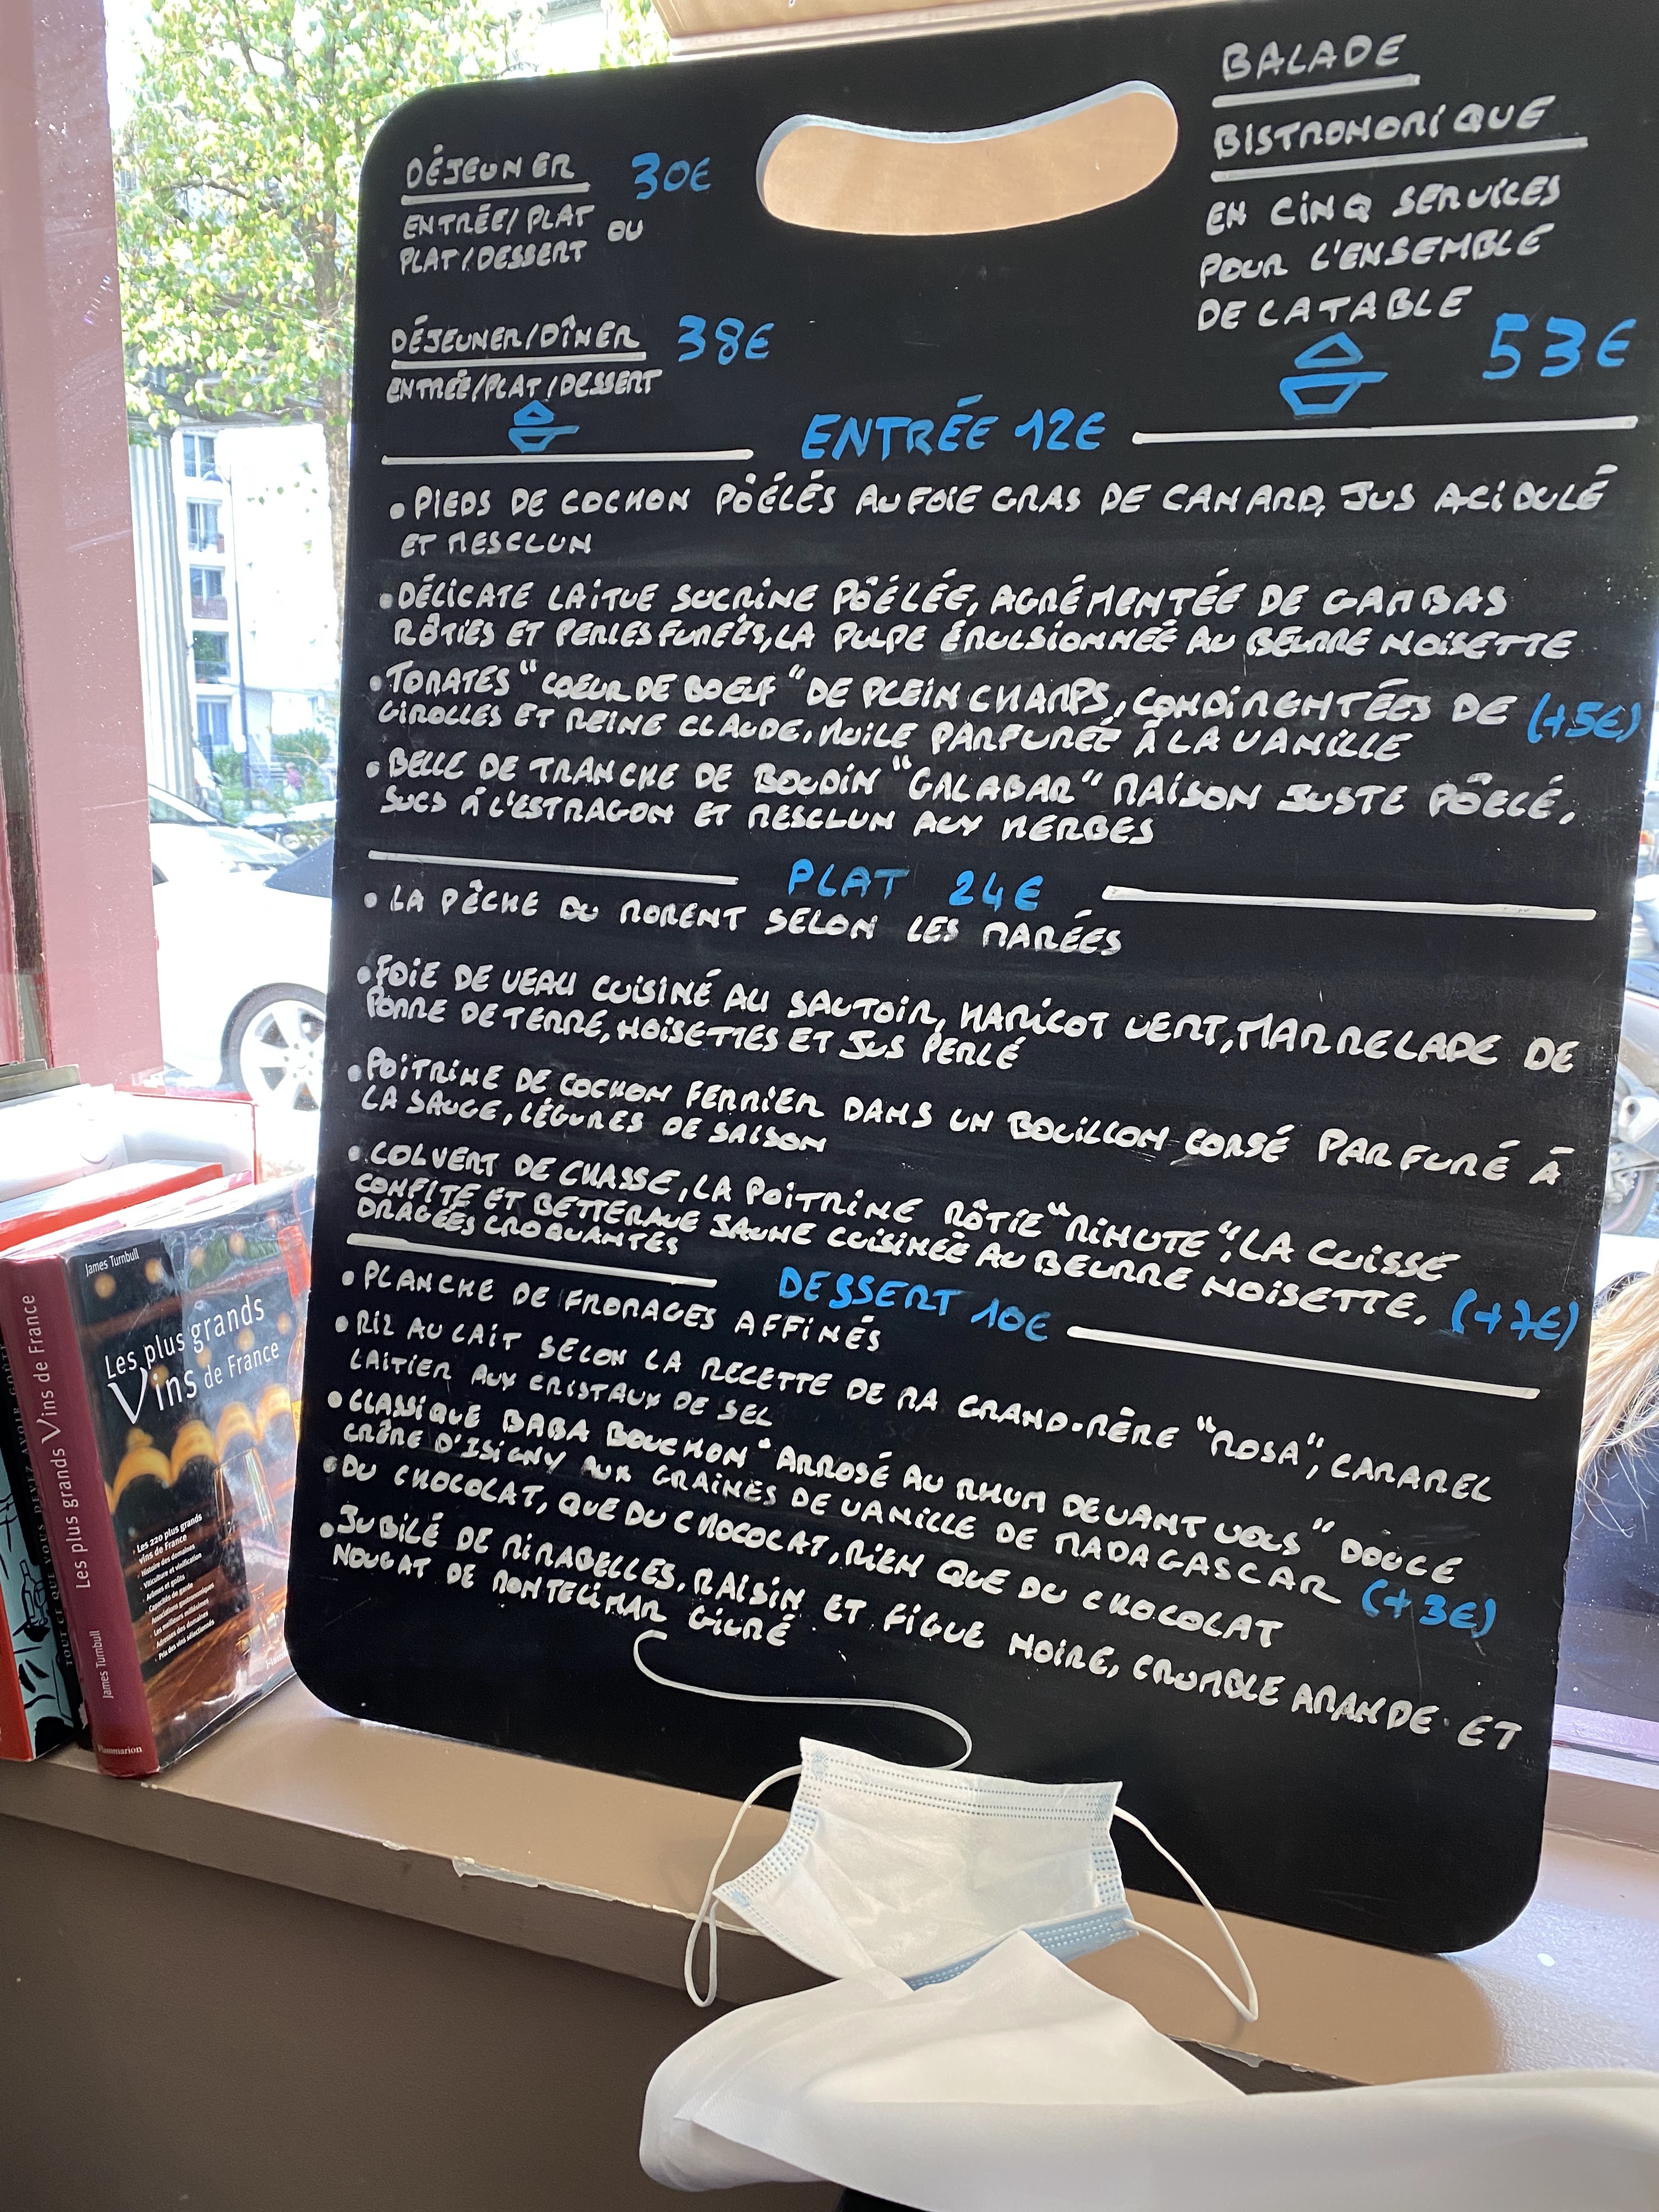 DÉJEUNER 30€
ENTRÉE/PLAT OU
PLAT/DESSERT
DÉJEUNER/DÎNER 38€
ENTRÉE/PLAT/DESSERT
BALADE
BISTRONOMIQUE
EN CINQ SERVICES
POUR L'ENSEMBLE
DE LA TABLE
53€
ENTRÉE 12€
• PIEDS DE COCHON PÖÉLÉS AU FOIE GRAS DE CANARD, JUS ACIDULÉ
ET MESCLUN
• DÉLICATE LAITUE SUCRINE PÔÉLÉE, AGRÉMENTÉE DE GAMBAS
RÔTIES ET PERLES FUMÉES, LA PULPE ÉMULSIONNÉE AU BEURRE NOISETTE
• TOMATES "COEUR DE BOEUF" DE PLEIN CHAMPS, CONDIMENTÉES DE (+5€)
GIROLLES ET REINE CLAUDE, HUILE PARFUMÉE À LA VANILLE
• BELLE DE TRANCHE DE BOUDIN "GALABAR" MAISON JUSTE PÔELÉ,
SUCS À L'ESTRAGON ET MESCLUN AUX HERBES
PLAT 24€
• LA PÊCHE DU MOMENT SELON LES MARÉES
• FOIE DE VEAU CUISINÉ AU SAUTOIR, HARICOT VERT, MARMELADE DE
POMME DE TERRE, NOISETTES ET JUS PERLÉ
• POITRINE DE COCHON FERMIER DANS UN BOUILLON CORSÉ PARFUMÉ À
LA SAUGE, LÉGUMES DE SAISON
• COLVERT DE CHASSE, LA POITRINE RÔTIE "MINUTE", LA CUISSE
CONFITE ET BETTERAVE JAUNE CUISINÉE AU BEURRE NOISETTE. (+7€)
DRAGÉES CROQUANTES
DESSERT 10€
• PLANCHE DE FROMAGES AFFINÉS
• RIZ AU LAIT SELON LA RECETTE DE MA GRAND-MÈRE "ROSA", CARAMEL
LAITIER AUX CRISTAUX DE SEL
• CLASSIQUE BABA BOUCHON "ARROSÉ AU RHUM DEVANT VOUS" DOUCE
CRÈME D'ISIGNY AUX GRAINES DE VANILLE DE MADAGASCAR (+3€)
• DU CHOCOLAT, QUE DU CHOCOLAT, RIEN QUE DU CHOCOLAT
• JUBILÉ DE MIRABELLES, RAISIN ET FIGUE NOIRE, CRUMBLE AMANDE ET
NOUGAT DE MONTELIMAR GIVRÉ
James Turnbull
Les plus grands
Vins de France
• Les 220 plus grands
vins de France
• Histoire des domaines
• Viticulture et vinification
• Arômes et goûts
• Capacités de garde
• Associations gastronomiques
• Les meilleurs millésimes
• Adresses des domaines
• Prix des vins sélectionnés
James Turnbull Les plus grands Vins de France
Flammarion
TOUT CE QUE VOUS DEVEZ AVOIR GOÛTÉ